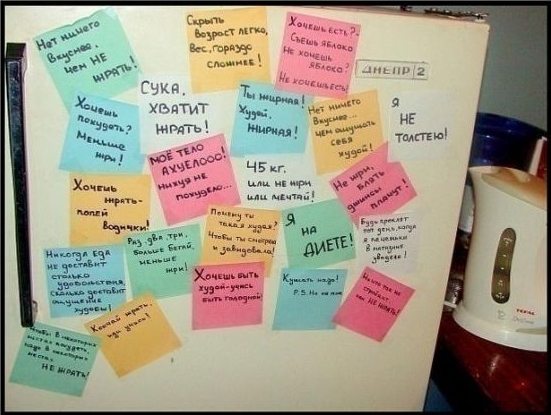 Нет ничего
вкуснее,
чем НЕ
ЖРАТЬ!
Скрыть
возраст легко,
вес, гораздо
сложнее!
Хочешь есть? -
Съешь яблоко
Не хочешь
яблоко?
Не хочешь есть!
ДНЕПР 2
Хочешь
похудеть?
Меньше
жри!
СУКА,
ХВАТИТ
ЖРАТЬ!
Ты жирная!
Худей,
ЖИРНАЯ!
Нет ничего
вкуснее...
чем ощущать
себя
худой!
Я
НЕ
ТОЛСТЕЮ!
Хочешь
жрать-
попей
водички!
МОЁ ТЕЛО
АХУЕЛООО!
нихуя не
похудело...
45 кг.
или не жри
или мечтай!
Не жри,
блять
джинсы
плачут!
Никогда еда
не доставит
столько
удовольствия,
сколько доставит
ощущение
худобы!
Раз, два, три,
больше бегай,
меньше
жри!
Почему ты
такая худая?
Чтобы ты смотрела
и завидовала!
Я
НА
ДИЕТЕ!
Будь проклят
тот день, когда
я печеньки
в магазине
увидела!
Хочешь быть
худой-учись
быть голодной!
Кушать надо!
P.S. Но не
Ничто так не
стройнит,
как НЕ ЖРАТЬ!
Чтобы в некоторых
местах похудеть,
надо в некоторых
местах
НЕ ЖРАТЬ!
Кончай жрать,
иди
TEFAL